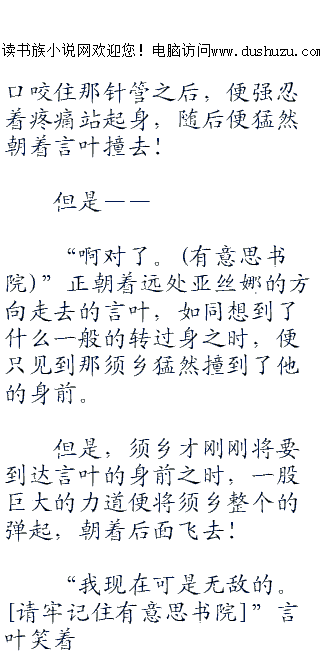 读书族小说网欢迎您！电脑访问www.dushuzu.com
口咬住那针管之后，便强忍
着疼痛站起身，随后便猛然
朝着言叶撞去！
但是——
“啊对了。(有意思书
院)”正朝着远处亚丝娜的方
向走去的言叶，如同想到了
什么一般的转过身之时，便
只见到那须乡猛然撞到了他
的身前。
但是，须乡才刚刚将要
到达言叶的身前之时，一股
巨大的力道便将须乡整个的
弹起，朝着后面飞去！
“我现在可是无敌的。
[请牢记住有意思书院]”言
叶笑着